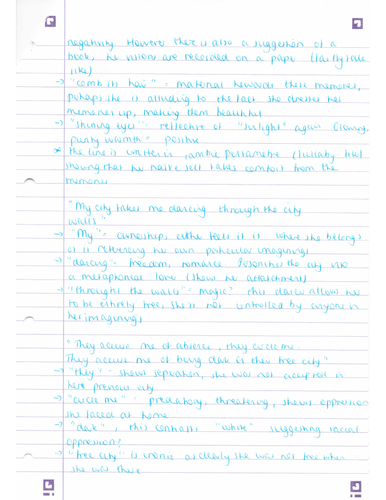 negativity. However there is also a suggestion of a
book, the visions are recorded on a paper (fairytale
like)
→ "comb its hair" : maternal towards these memories,
perhaps she is alluding to the fact she dresses her
memories up, making them beautiful
→ "shining eyes" : reflective of "sunlight" again
purity warmth positive
* the line is written in iambic (lullaby like)
showing that the self takes comfort from the
memories
"My city takes me dancing through the city
walls."
→ "My" = ownership, she feels it is where she belongs
or is referencing her own particular imaginings
→ "dancing" = freedom, romance. Personifies the city into
a metaphorical love (shows the attachment)
→ "through the walls" = magic? this dance allows her
to be entirely free, she is not controlled by anyone in
her imaginings
"They accuse me of absence, they circle me.
They accuse me of being dark in their free city"
→ "they" : shows separation, she was not accepted in
her previous city
→ "circle me" : predatory, threatening, shows oppression
she faced at home
→ "dark", this contrasts "white" suggesting racial
oppression?
→ "free city" is ironic as clearly she was not free when
she was there